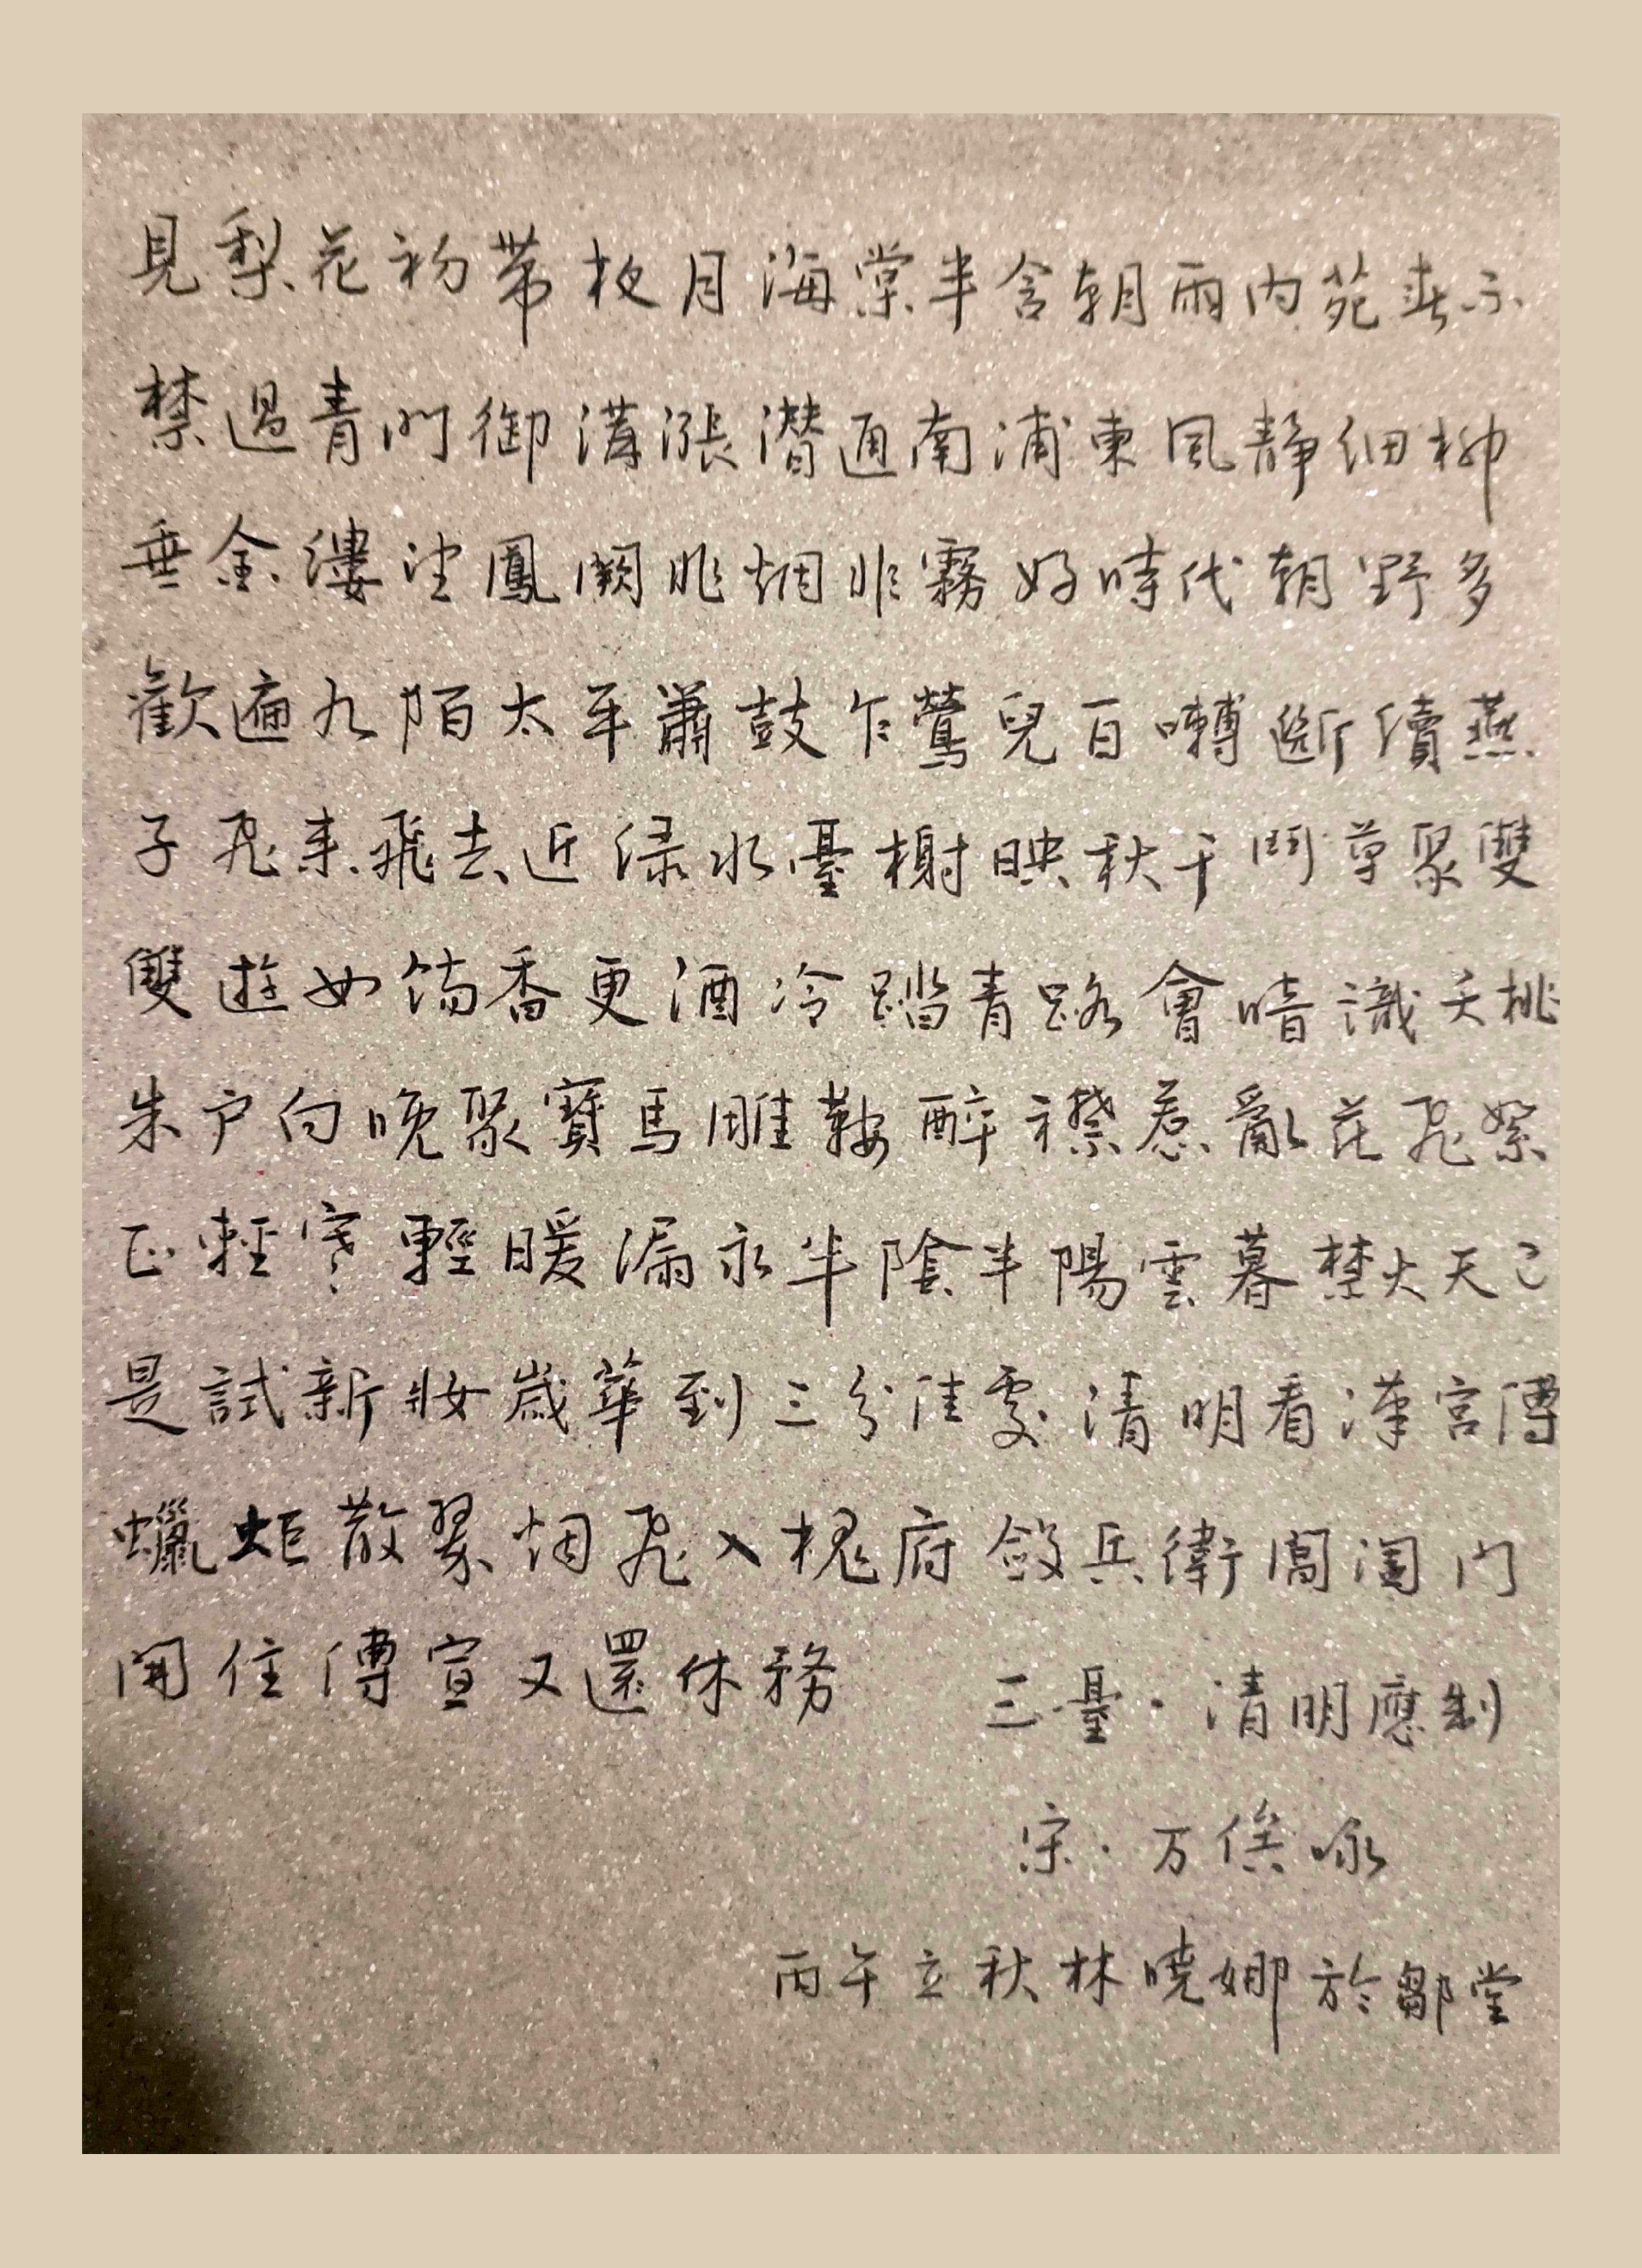 見梨花初帶夜月海棠半含朝雨內苑春不
禁過青門御溝漲潛通南浦東風靜細柳
垂金縷望鳳闕非烟非霧好時代朝野多
歡遍九陌太平簫鼓乍鶯兒百囀斷續燕
子飛來飛去近绿水臺榭映秋千鬥草聚雙
雙遊女餳香更酒冷踏青路會暗識夭桃
朱戶向晚聚寶馬雕鞍醉襟惹亂花飛絮
正輕寒輕暖漏永半陰半陽雲暮禁火天已
是試新妝歲華到三分佳處清明看漢宮傳
蠟炬散翠烟飛入槐府斂兵衛閶闔門
開住傳宣又還休務
三臺·清明應制
宋·万俟咏
丙午立秋林曉娜於鄒堂